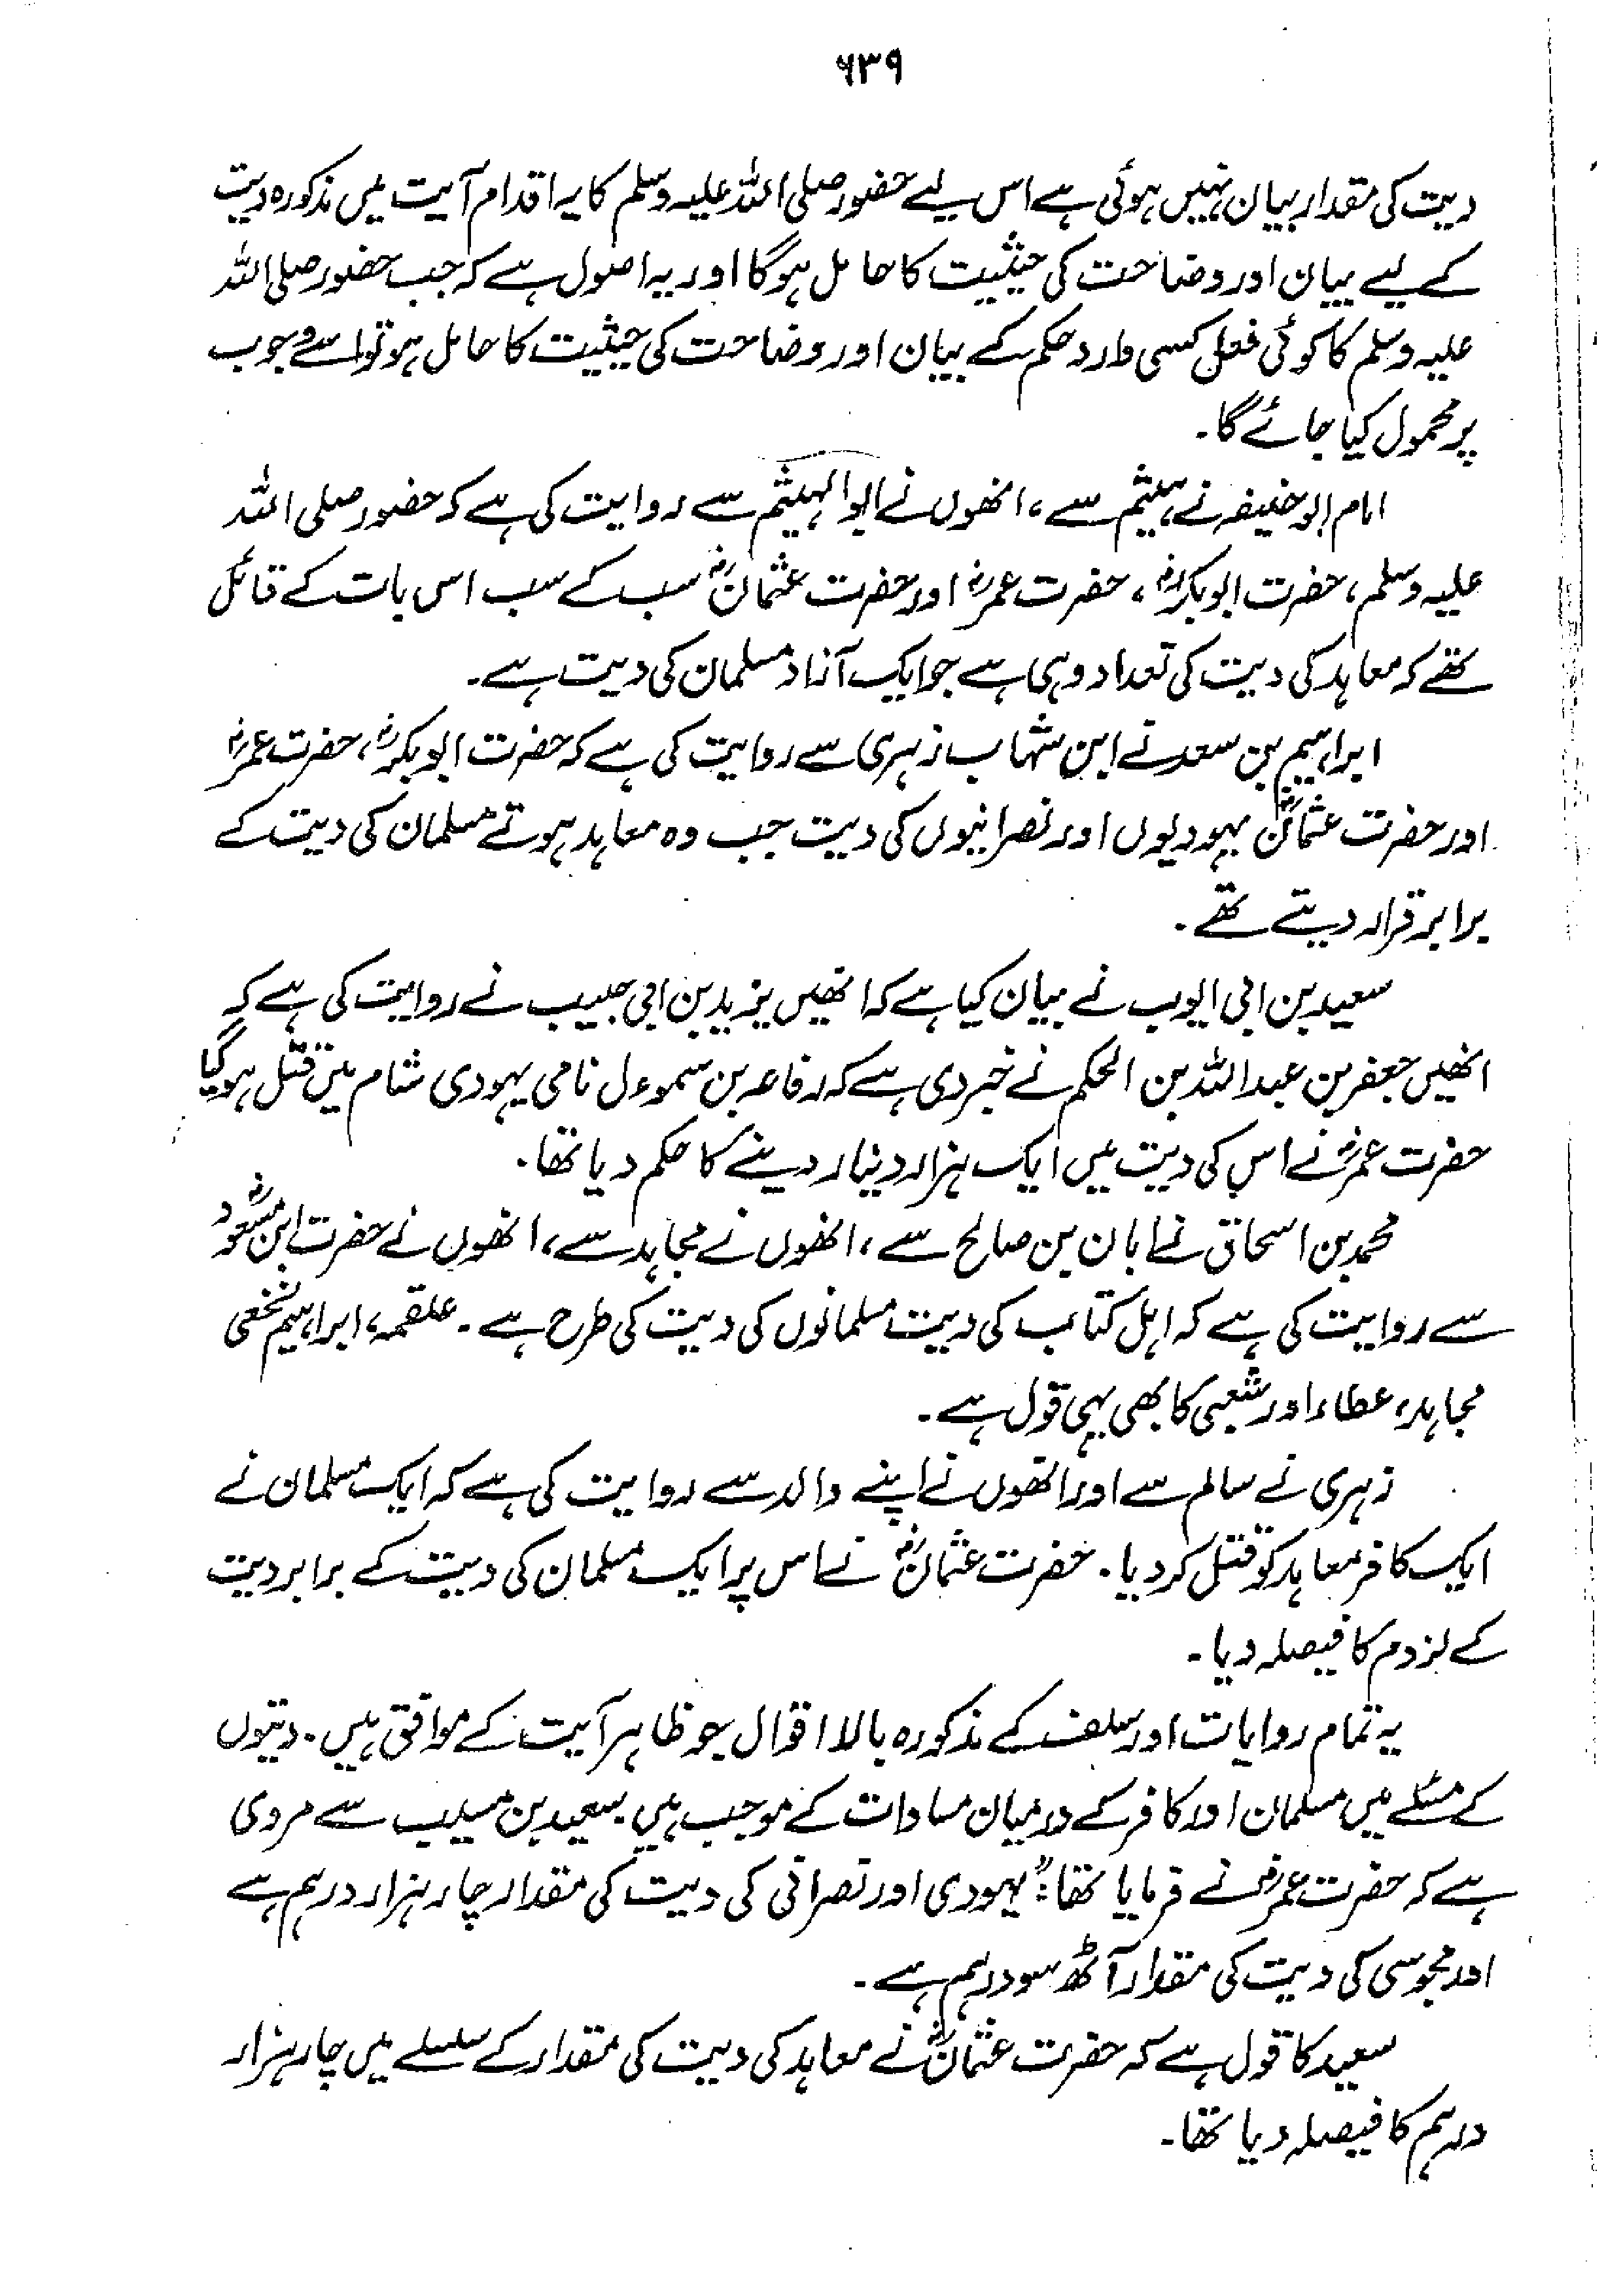 ۶۳۹
دیت کی مقدار بیان نہیں ہوئی ہے اس لیے حضور صلی اللہ علیہ وسلم کا یہ اقدام آیت میں مذکورہ دیت
کے لیے بیان اور وضاحت کی حیثیت کا حامل ہوگا اور یہ اصول ہے کہ جب حضور صلی اللہ
علیہ وسلم کا کوئی فعل کسی وارد حکم کے بیان اور وضاحت کی حیثیت کا حامل ہو تو اسے وجوب
پر محمول کیا جائے گا۔
امام ابو حنیفہ نے ہیثم سے، انھوں نے ابو الہیثم سے روایت کی ہے کہ حضور صلی اللہ
علیہ وسلم، حضرت ابوبکرؓ، حضرت عمرؓ اور حضرت عثمانؓ سب کے سب اس بات کے قائل
تھے کہ معاہد کی دیت کی تعداد وہی ہے جو ایک آزاد مسلمان کی دیت ہے۔
ابراہیم بن سعد نے ابن شہاب زہری سے روایت کی ہے کہ حضرت ابوبکرؓ، حضرت عمرؓ
اور حضرت عثمانؓ یہودیوں اور نصرانیوں کی دیت جب وہ معاہد ہوتے مسلمان کی دیت کے
برابر قرار دیتے تھے۔
سعید بن ابی ایوب نے بیان کیا ہے کہ انھیں یزید بن ابی حبیب نے روایت کی ہے کہ
انھیں جعفر بن عبداللہ بن الحکم نے خبر دی ہے کہ رفاعہ بن سموءل نامی یہودی شام میں قتل ہوگیا
حضرت عمرؓ نے اس کی دیت میں ایک ہزار دینار دینے کا حکم دیا تھا۔
محمد بن اسحاق نے ابان بن صالح سے، انھوں نے مجاہد سے، انھوں نے حضرت ابن مسعودؓ
سے روایت کی ہے کہ اہل کتاب کی دیت مسلمانوں کی دیت کی طرح ہے۔ علقمہ، ابراہیم نخعی
مجاہد، عطاء اور شعبی کا بھی یہی قول ہے۔
زہری نے سالم سے اور انھوں نے اپنے والد سے روایت کی ہے کہ ایک مسلمان نے
ایک کافر معاہد کو قتل کر دیا۔ حضرت عثمانؓ نے اس پر ایک مسلمان کی دیت کے برابر دیت
کے لزوم کا فیصلہ دیا۔
یہ تمام روایات اور سلف کے مذکورہ بالا اقوال جو ظاہر آیت کے موافق ہیں۔ دیتوں
کے مسئلے میں مسلمان اور کافر کے درمیان مساوات کے موجب ہیں۔ سعید بن مسیب سے مروی
ہے کہ حضرت عمرؓ نے فرمایا تھا: "یہودی اور نصرانی کی دیت کی مقدار چار ہزار درہم ہے
اور مجوسی کی دیت کی مقدار آٹھ سو درہم ہے۔
سعید کا قول ہے کہ حضرت عثمانؓ نے معاہد کی دیت کی مقدار کے سلسلے میں چار ہزار
درہم کا فیصلہ دیا تھا۔